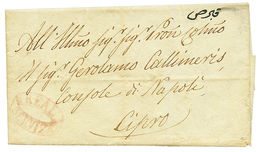 قبرص
All'Illmo Sigr. Sigr. Pron Colmo
il Sigr. Gerolamo Callimeris,
Console di Napoli
Cipro